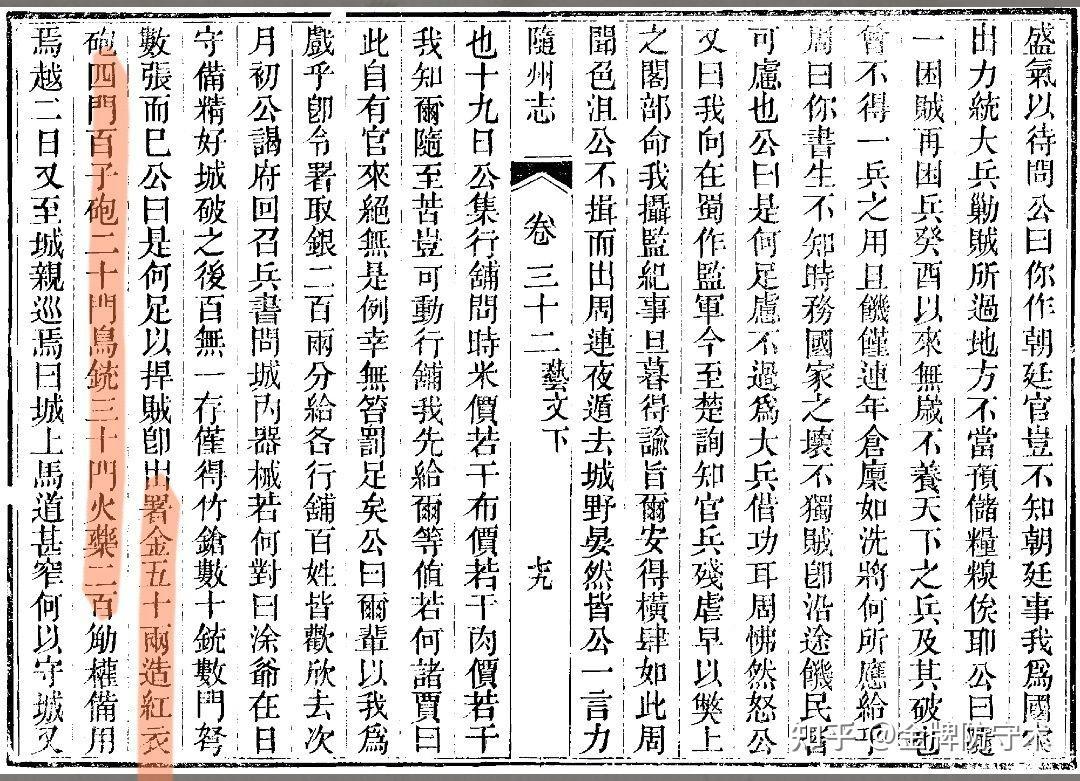 盛氣以待問公曰你作朝廷官豈不知朝廷事我爲國家
出力統大兵勦賊所過地方不當預儲糧糗俟耶公曰隨
一困賊再困兵癸酉以來無歲不養天下之兵及其破也
曾不得一兵之用且饑饉連年倉廩如洗將何所應給乎
周曰你書生不知時務國家之壞不獨賊卽沿途饑民皆
可慮也公曰是何足慮不過爲大兵借功耳周怫然怒公
又曰我向在蜀作監軍今至楚詢知官兵殘虐早以獘上
之閣部命我攝監紀事旦暮得諭旨爾安得橫肆如此周
聞色沮公不揖而出周連夜遁去城野晏然皆公一言力
隨州志 卷三十二 藝文下 十九
也十九日公集行舖問時米價若干布價若干肉價若干
我知爾隨至苦豈可動行舖我先給爾等值若何諸賈曰
此自有官來絕無是例幸無笞罰足矣公曰爾輩以我爲
戲乎卽令署取銀二百兩分給各行舖百姓皆歡欣去次
月初公謁府回召兵書問城內器械若何對曰涂爺在日
守備精好城破之後百無一存僅得竹鎗數十銃數門弩
數張而巳公曰是何足以捍賊卽出署金五十兩造紅衣
砲四門百子砲二十門鳥銃三十門火藥二百觔權備用
焉越二日又至城親巡焉曰城上馬道甚窄何以守城又
知乎 @金牌